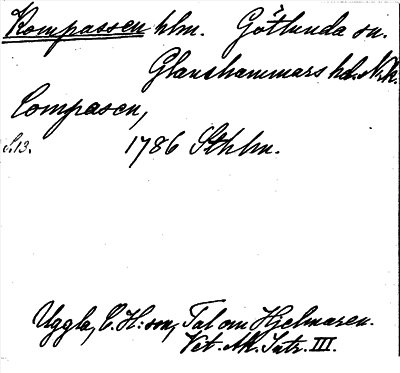 Kompassen hlm. Götlunda sn.
Glanshammars hd. Nrk.
Compasen,
S. 13. 1786 Sthlm.
Uggla, C. H:son, Tal om Hjelmaren.
Vet. Ak. Intr. III.